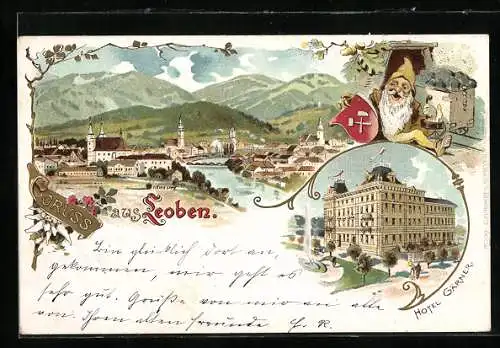 GRUSS
aus Leoben.
HOTEL GÄRNER
Bin glücklich dort an,
gekommen, mir geht es
sehr gut. Grüße von mir an alle
von. Ihren alten Freunde